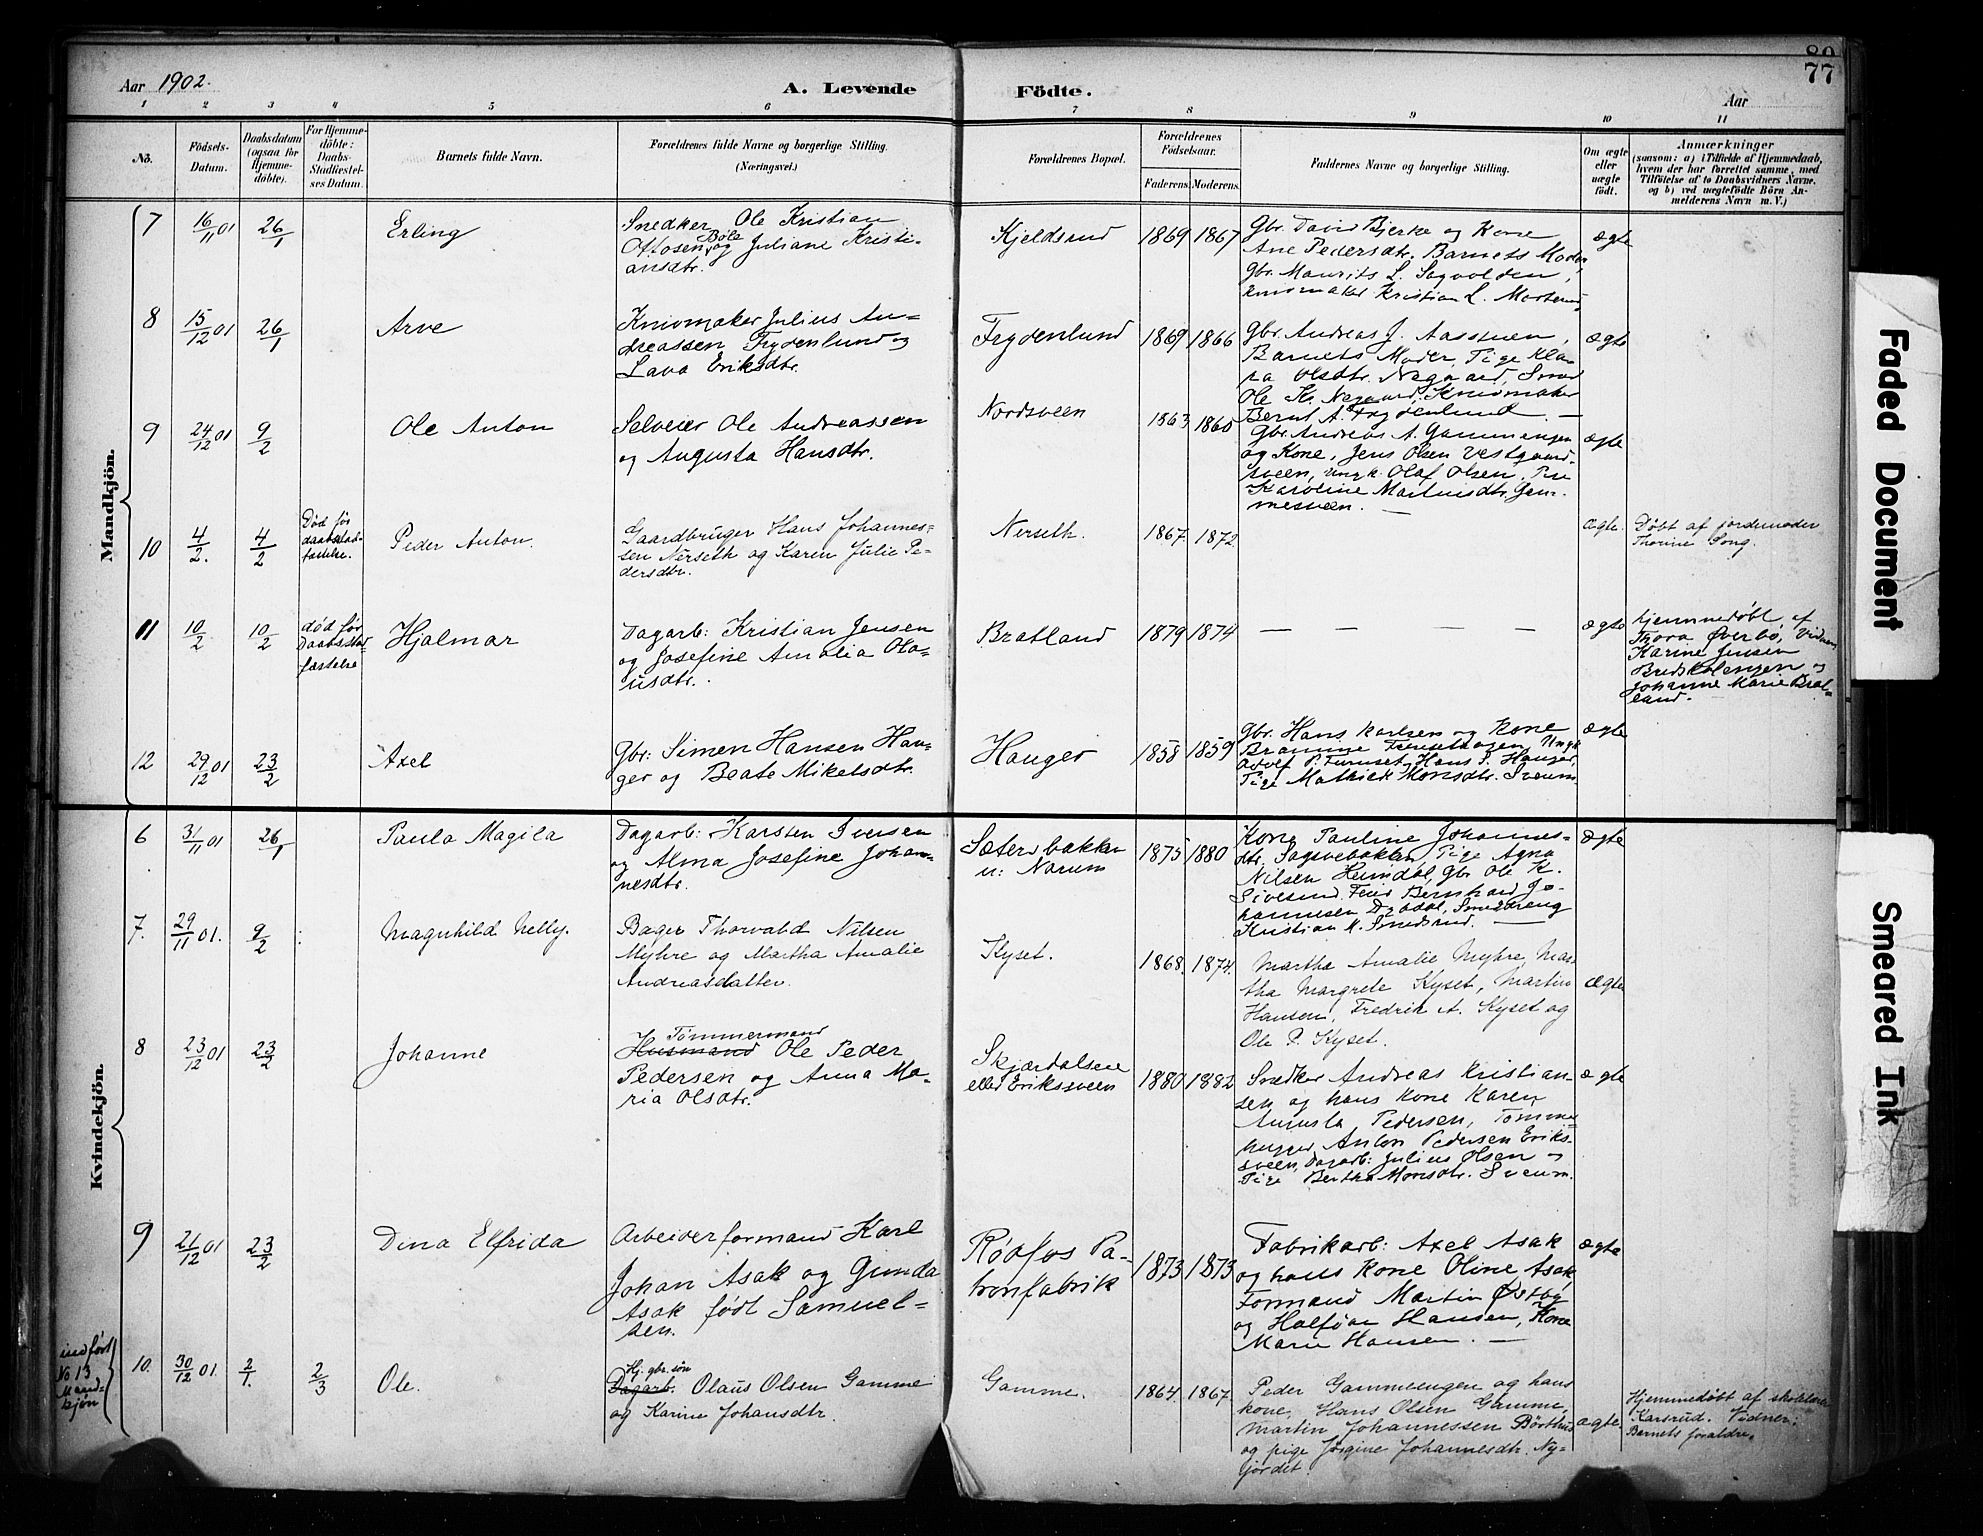 Aar 1902.
A. Levende Födte.
80
77
Aar
1 2 3 4 5 6 7 8 9 10 11
No.
Födsels-Datum.
Daabsdatum (ogsaa for Hjemme-döbte).
For Hjemme-döbte: Daabs-Stadfæstel-ses Datum.
Barnets fulde Navn.
Forældrenes fulde Navne og borgerlige Stilling.
(Næringsvei.)
Forældrenes Bopæl.
Forældrenes Födselsaar.
Faderens. Moderens.
Faddernes Navne og borgerlige Stilling.
Om ægte eller uægte födt.
Anmærkninger
(saasom: a) i Tilfælde af Hjemmedaab, hvem der har forrettet samme, med Tilföielse af to Daabsvidners Navne, og b) ved uægtefödte Börn An-melderens Navn m. V.)
Mandkjön.
7 16/11 01 26/1 Erling
Snedker Ole Kristian
Ottosen Böle og Juliane Kristi-
ansdtr.
Kjeldsrud 1869 1867
Gbr. David Bjerke og Kone
Ane Pedersdtr. Barnets Moder,
Gbr. Maurits L. Sagvolden,
knivmaker Kristian L.
ægte
8 15/12 01 26/1 Arve
Knivmaker Julius An-
dreassen Frydenlund og
Lava Eriksdtr.
Frydenlund 1869 1866
Gbr. Andreas J. Aassveen,
Barnets Moder, Pige Kla-
ra Olsdtr. Negaard, Smed
Ole Kr. Negaard, Knivmaker
Bernt A. Frydenlund. —
ægte
9 24/12 01 9/2 Ole Anton
Selveier Ole Andreassen
og Augusta Hansdtr.
Nordsveen 1863 1860
Gbr. Andreas A. Gammeengen
og Kone, Jens Olsen Vestgaard-
sveen, ungk. Olaf Olsen, Pige
Karoline Martinsdtr. Gam-
mesveen. —
ægte
10 4/2. 4/2 Död før daabsstad-fæstelse.
Peder Anton.
Gaardbruger Hans Johannes-
sen Nerseth og Karen Julie Pe-
dersdtr.
Nerseth. 1867. 1872.
ægte.
Döbt af jordemoder
Thorine Song.
11 10/2 10/2 död før Daabsstad-fæstelse
Hjalmar
Dagarb: Kristian Jensen
og Josefine Amalia Ola-
usdtr.
Bratland 1879 1874
— — — —
ægte
hjemmedöbt af
Thora Øverbø, Vidner
Karine Jensen
Bredskolengen og
Johanne Marie Brat-
land.
12 29/12 01 23/2 Axel
Gbr: Simen Hansen Hau-
ger og Beate Mikelsdtr.
Hauger 1858 1859
Gbr. Hans Karlsen og Kone
Adolf P. Furuset, Hans S. Hauger,
Pige Mathilde Monsdtr. Sveum.
ægte
Kvindekjön.
6 31/11 01 26/1 Paula Magila
Dagarb: Karsten Iversen
og Alma Josefine Johan-
nesdtr.
Sæterbakken
u: Narum
1875 1880
Kone Pauline Johannes-
dtr. Sagvebakken, Pige Agna
Nilsen Heimdal, Gbr. Ole K.
Sivesind, Feier Bernhard Jo-
hannesen Dzødal, Smeddreng
Kristian M. Smedsrud. —
ægte
7. 29/11 01. 9/2 Magnhild Nelly.
Bager Thorvald Nilsen
Myhre og Martha Amalie
Andreasdatter.
Kyset. 1868. 1874.
Martha Amalie Myhre, Mar-
tha Margrete Kyset, Martin
Hansen, Fredrik A. Kyset og
Ole P. Kyset.
ægte
8 23/12 01 23/2 Johanne
Tømmermand
Husmand Ole Peder
Pedersen og Anna Ma-
ria Olsdtr.
Skjærdalseie
eller Erikssveen
1880 1882
Snedker Andreas Kristian-
sen og hans Kone Karen
Augusta Pedersen, Tømmer-
hugger Anton Pedersen Eriks-
sveen, Dagarb: Julius Olsen og
Pige Bertha Monsdtr. Sveum.
ægte
9 21/12 01 23/2 Dina Elfrida
Arbeiderformand Karl
Johan Asak og Gunda
Asak født Samuel-
sen.
Rødfos Pa-
tronfabrik
1873 1873
Fabrikarb: Axel Asak
og hans Kone Oline Asak,
Formand Martin Østby
og Halfdan Hansen, Kone
Marie Hansen. —
ægte
indført
No 13
Mand-
kjön
10. 30/12 01. 2/1. 2/3 Ole.
Hj. gbr. søn
Dagarb. Olaus Olsen Gamme
og Karine Johansdtr.
Gamme. 1864. 1867.
Peder Gammeengen og hans
kone, Hans Olsen Gamme,
Martin Johannessen Börthus
og pige Jörgine Johannesdtr. Ny-
jordet.
ægte.
Hjemmedöbt af skolelærer
Karsrud. Vidner:
Barnets forældre.
Faded Document
Smeared Ink